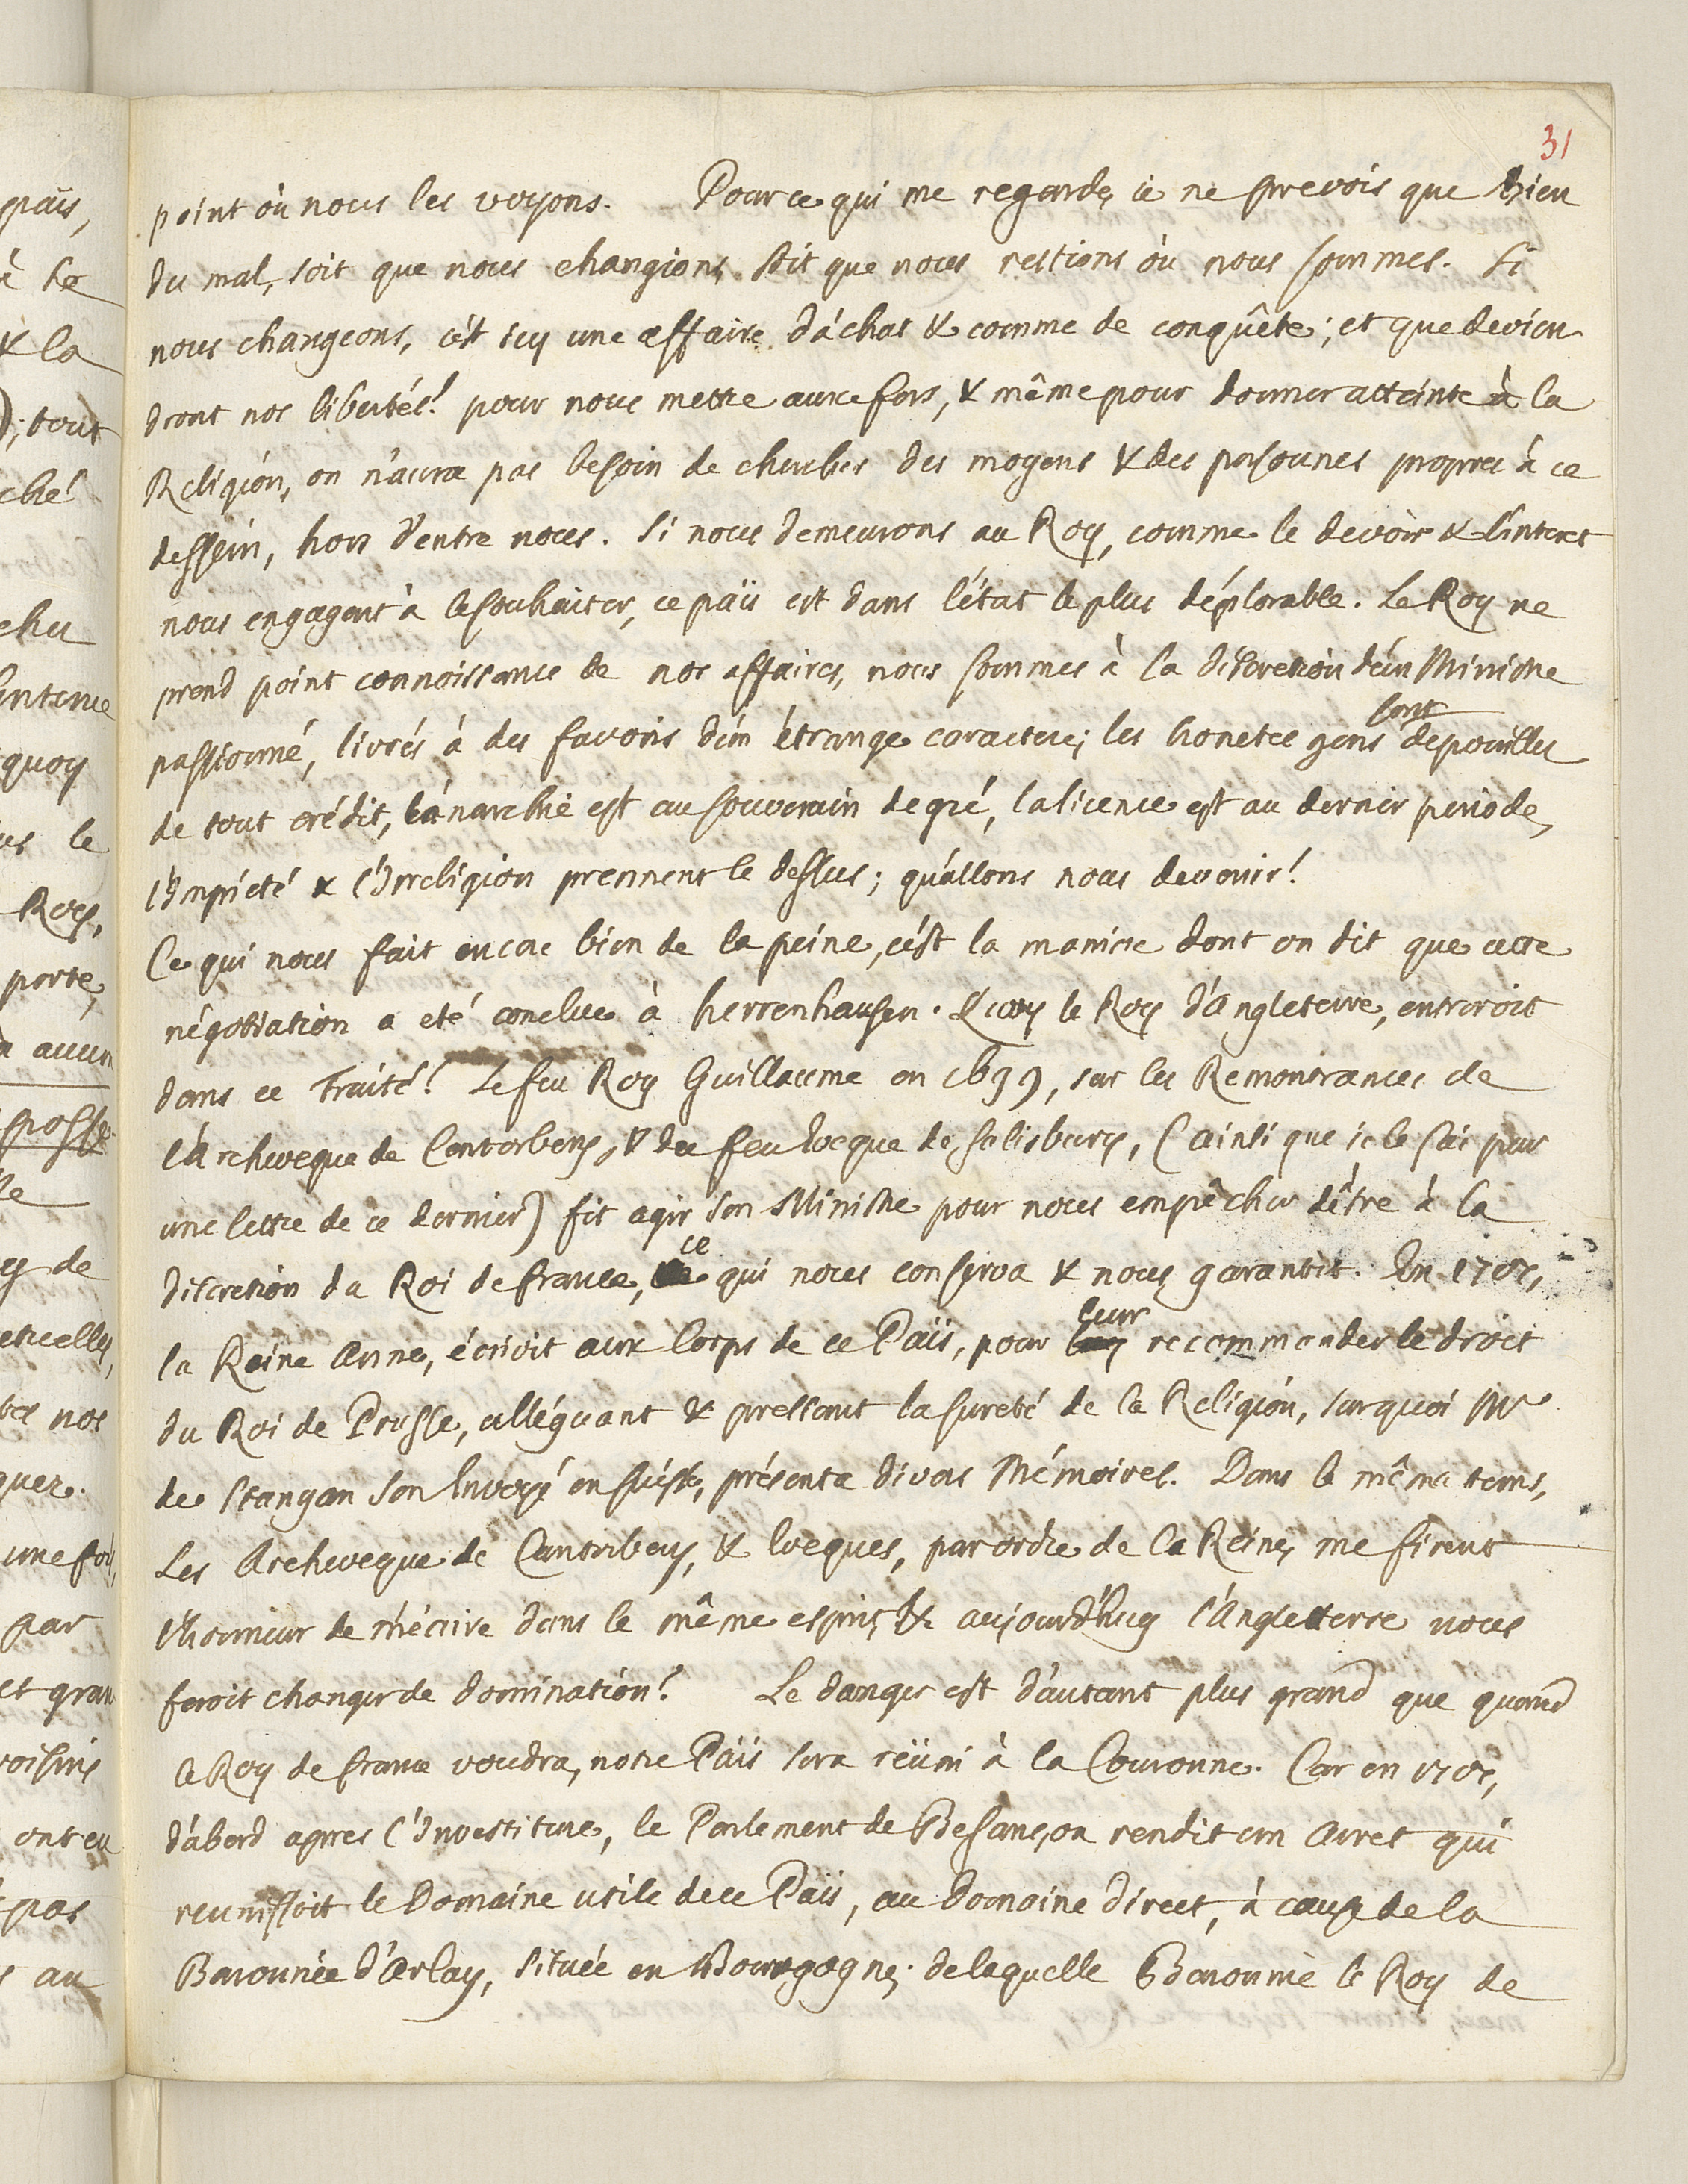 31
point où nous les voyons. Pour ce qui me regarde, ie ne prevois que bien
du mal, soit que nous changions, soit que nous restions où nous sommes. Si
nous changeons, c'est icy une affaire d'achat & comme de conquête; et que devien
dront nos libertés? pour nous mettre aux fers, & même pour donner atteinte à la
Religion, on n'aura pas besoin de chercher des moyens & des personnes propres à ce
dessein, hors d'entre nous. Si nous demeurons au Roy, comme le devoir & l'interet
nous engagent à le souhaiter, ce païs est dans l'état le plus déplorable. Le Roy ne
prend point connoissance de nos affaires, nous sommes à la discretion d'un Ministre
passionné, livrés à des favoris d'un étrange caractere; les honetes gens sont depouillés
de tout crédit, l'anarchie est au souverain degré, la licence est au dernier periode,
l'Impieté & l'Irreligion prennent le dessus; qu'allons nous devenir!
Ce qui nous fait encore bien de la peine, c'est la maniere dont on dit que cette
négotiation a eté conclue à herrenhausen. Quoy le Roy d'Angleterre, entreroit
dans ce Traité? Le feu Roy Guillaume en 1699, sur les Remontrances de
l'Archeveque de Cantorbery, & du feu Eveque de Salisbury, (ainsi que ie le sai par
une lettre de ce dernier) fit agir son Ministre pour nous empêcher d'être à la
discretion du Roi de france, ce qui nous conserva & nous garantit. En 1707,
la Reine Anne, écrivit aux Corps de ce Païs, pour leur recommander le droit
du Roi de Prusse, alléguant & pressant la sureté de la Religion, surquoi Mr
de Stanyan son Envoyé en suisse, présenta divers Mémoires. Dans le même tems,
Les Archeveque de Cantorbery, & Eveques, par ordre de la Reine, me firent
l'honneur de m'écrire dans le même esprit, & aujourd'huy l'Angleterre nous
feroit changer de domination? Le danger est d'autant plus grand que quand
le Roy de france voudra, notre Païs sera réüni à la Couronne. Car en 1707,
d'abord apres l'Investiture, le Parlement de Besançon rendit un Arret qui
reunissoit le Domaine utile de ce Païs, au Domaine direct, à cause de la
Baronnie d'Arlay, située en Bourgogne; de laquelle Baronnie le Roy de